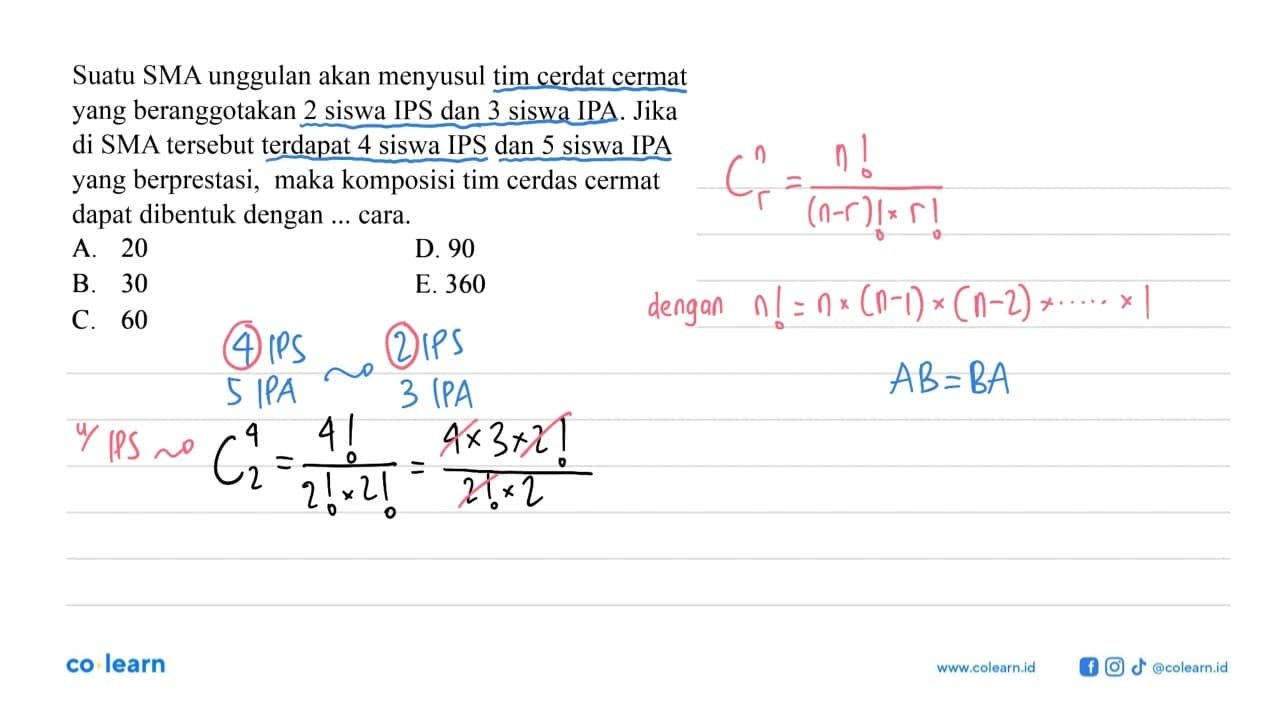 Suatu SMA unggulan akan menyusul tim cerdat cermat
yang beranggotakan 2 siswa IPS dan 3 siswa IPA. Jika
di SMA tersebut terdapat 4 siswa IPS dan 5 siswa IPA
yang berprestasi, maka komposisi tim cerdas cermat
dapat dibentuk dengan ... cara.
A. 20
B. 30
C. 60
D. 90
E. 360
C^n_r = n! / (n-r)! × r!
dengan n! = n × (n-1) × (n-2) × ..... × 1
AB = BA
4 IPS ~ 2 IPS
5 IPA 3 IPA
u/ IPS ~ C^4_2 = 4! / 2! × 2! = 4 × 3 × 2! / 2! × 2
co learn
www.colearn.id
@colearn.id